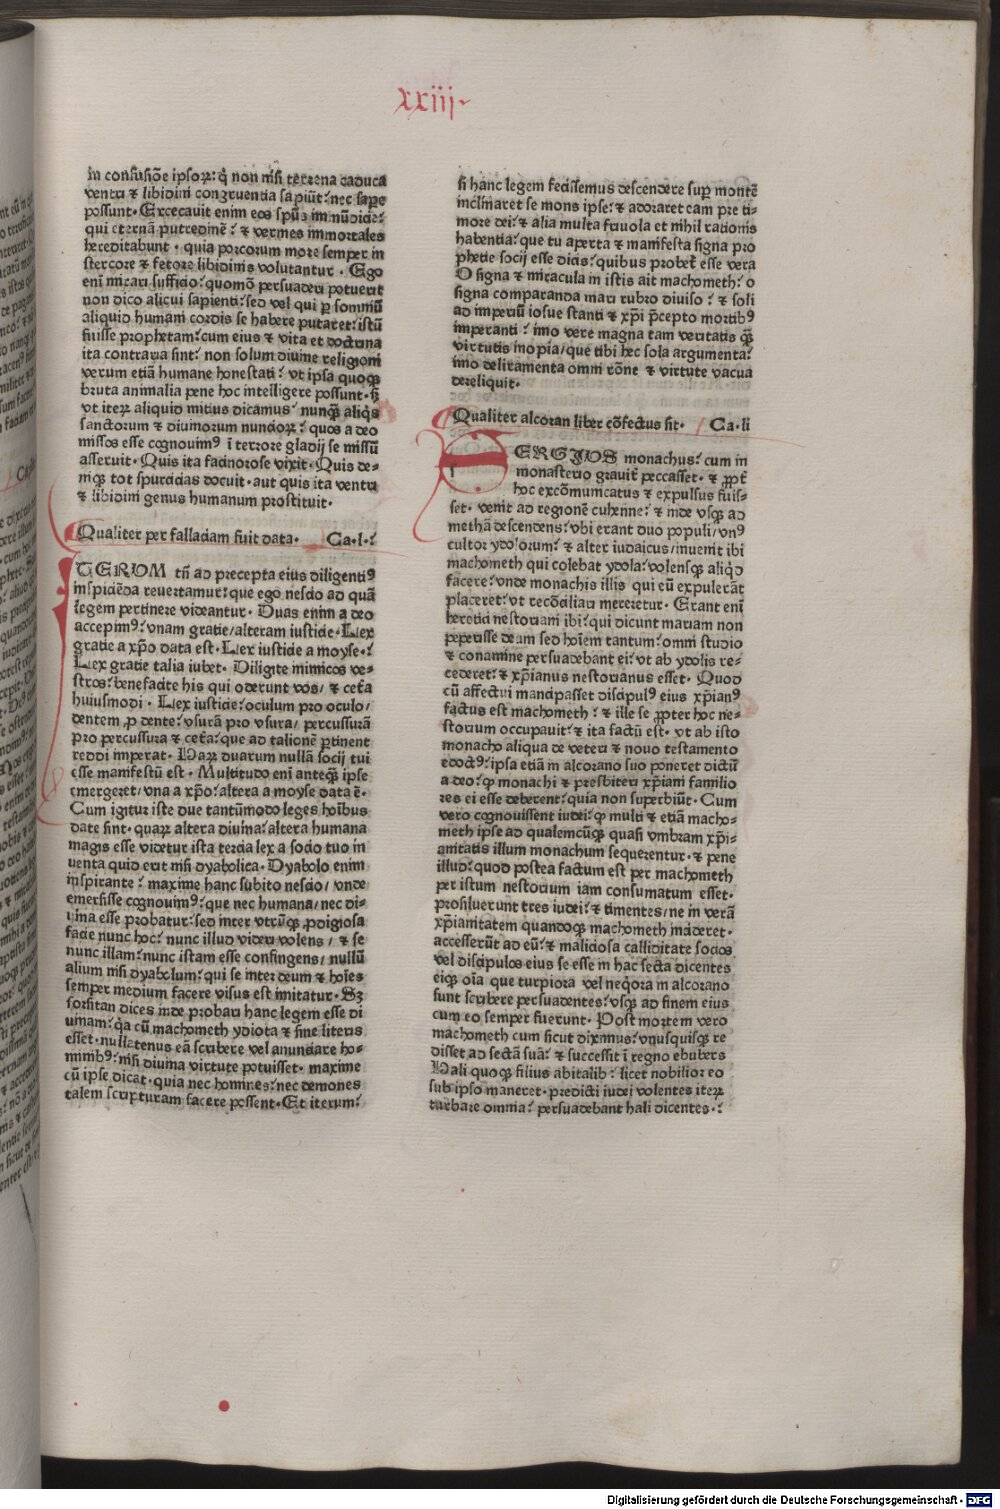 xxiij
in confusiōe ipsoꝝ: q̄ non nisi terrena caduca
ventri & libidini congruentia sapiūt: nec sape
possunt. Excecauit enim eos spūs immūdicie:
qui eternā putredinē: & vermes immortales
hereditabunt. quia porcorum more semper in
stercore & fetore libidinis volutantur. Ego
eni mirari sufficio: quomō persuaderi potuerit
non dico alicui sapienti: sed vel qui ꝑ somniū
aliquid humani cordis se habere putaret: istū
fuisse prophetam: cum eius & vita et doctrina
ita contraria sint: non solum diuine religioni
verum etiā humane honestati: vt ipsa quoqꝫ
bruta animalia pene hoc intelligere possunt. sꝫ
vt iterꝝ aliquid mitius dicamus: nunqꝫ aliqs
sanctorum & diuinorum nuncioꝝ: quos a deo
missos esse cognouimꝰ ī terrore gladij se missū
asseruit. Quis ita facinorose vixit. Quis de-
niqꝫ tot spurcicias docuit. aut quis ita ventri
& libidini genus humanum prostituit.
Qualiter per falladam fuit data. Ca.l.:
ITERVM tn̄ ad precepta eius diligentiꝰ
inspiciēda reuertamur: que ego nescio ad quā
legem pertinere videantur. Duas enim a deo
accepimꝰ: vnam gratie/alteram iusticie. Lex
gratie a xp̄o data est. Lex iusticie a moyse.:
Lex gratie talia iubet. Diligite inimicos ve-
stros: benefacite his qui oderunt vos/ & cetā
huiusmodi. Lex iusticie: oculum pro oculo/
dentem ꝓ dente: vsurā pro vsura/ percussurā
pro percussura & cetā: que ad talionē ꝑtinent
reddi imperat. Harꝝ duarum nullā socij tui
esse manifestū est. Multitudo eni anteqꝫ ipse
emergeret/ vna a xp̄o: altera a moyse data ē.
Cum igitur iste due tantūmodo leges hoībus
date sint. quarꝝ altera diuina: altera humana
magis esse videtur ista tercia lex a socio tuo in
uenta quid erit nisi dyabolica. Dyabolo enim
inspirante: maxime hanc subito nescio/ vnde
emersisse cognouimꝰ: que nec humana/ nec di-
uina esse probatur: sed inter vtrūqꝫ ꝓdigiosa
facie nunc hoc: nunc illud videri volens/ & se
nunc illam: nunc istam esse confingens/ nullū
alium nisi dyabolum: qui se inter deum & hoīes
semper medium facere visus est imitatur. Sꝫ
forsitan dices inde probari hanc legem esse di
uinam: qa cū machometh ydiota & sine litteris
esset. nullatenus eā scribere vel anunciare ho-
minibꝰ: nisi diuina virtute potuisset. maxime
cū ipse dicat. quia nec homines: nec demones
talem scripturam facere possent. Et iterum:
si hanc legem fecissemus descendere suꝑ montē
inclinaret se mons ipse: & adoraret eam pre ti-
more dei: & alia multa friuola et nihil rationis
habentia: que tu aperta & manifesta signa pro
phetie socij esse dicis: quibus probet̄ esse vera
O signa & miracula in istis ait machometh: o
signa comparanda mari rubro diuiso: & soli
ad imperiū iosue stanti & xp̄i p̄cepto mortibꝰ
imperanti: imo vere magna tam veritatis qꝫ
virtutis inopia/ que tibi hec sola argumenta:
imo deliramenta omni rōne & virtute vacua
dereliquit.
Qualiter alcoran liber cōfectus sit. Ca.li
SERGIVS monachus: cum in
monasterio grauit̄ peccasset. & ꝓpt̄
hoc excōmunicatus & expulsus fuis-
set. venit ad regionē cuhenne: & inde vsqꝫ ad
methā descendens: vbi erant duo populi/ vnꝰ
cultor ydolorum: & alter iudaicus/ inuenit ibi
machometh qui colebat ydola: volensqꝫ aliqd
facere: vnde monachis illis qui eū expulerāt
placeret: vt recōciliari mereretur. Erant eni
heretici nestoriani ibi: qui dicunt mariam non
peperisse deum sed hoīem tantum: omni studio
& conamine persuadebant ei: vt ab ydolis re-
cederet: & xp̄ianus nestorianus esset. Quod
cū affectui mancipasset discipulꝰ eius xp̄ianꝰ
factus est machometh: & ille se ꝓpter hoc ne-
storium occupauit: & ita factū est. vt ab isto
monacho aliqua de veteri & nouo testamento
edoctꝰ: ipsa etiā in alcorano suo poneret dictū
a deo: qꝫ monachi & presbiteri xp̄iani familio
res ei esse deberent: quia non superbiūt. Cum
vero cognouissent iudei: qꝫ multi & etiā macho-
meth ipse ad qualemcūqꝫ quasi vmbram xp̄i-
anitatis illum monachum sequerentur. & pene
illud: quod postea factum est per machometh
per istum nestorium iam consumatum esset.
prosiluerunt tres iudei: & timentes/ ne in verā
xp̄ianitatem quandoqꝫ machometh incideret.
accesserūt ad eū: & maliciosa calliditate socios
vel discipulos eius se esse in hac secta dicentes
eiqꝫ oīa que turpiora vel neqora in alcorano
sunt scribere persuadentes: vsqꝫ ad finem eius
cum eo semper fuerunt. Post mortem vero
machometh cum sicut diximus: vnusquisqꝫ re
disset ad sectā suā: & successit ī regno ebubers
Hali quoqꝫ filius abitalib: licet nobilior eo
sub ipso maneret. predicti iudei volentes iterꝝ
turbare omnia: persuadebant hali dicentes.:
Digitalisierung gefördert durch die Deutsche Forschungsgemeinschaft - DFG